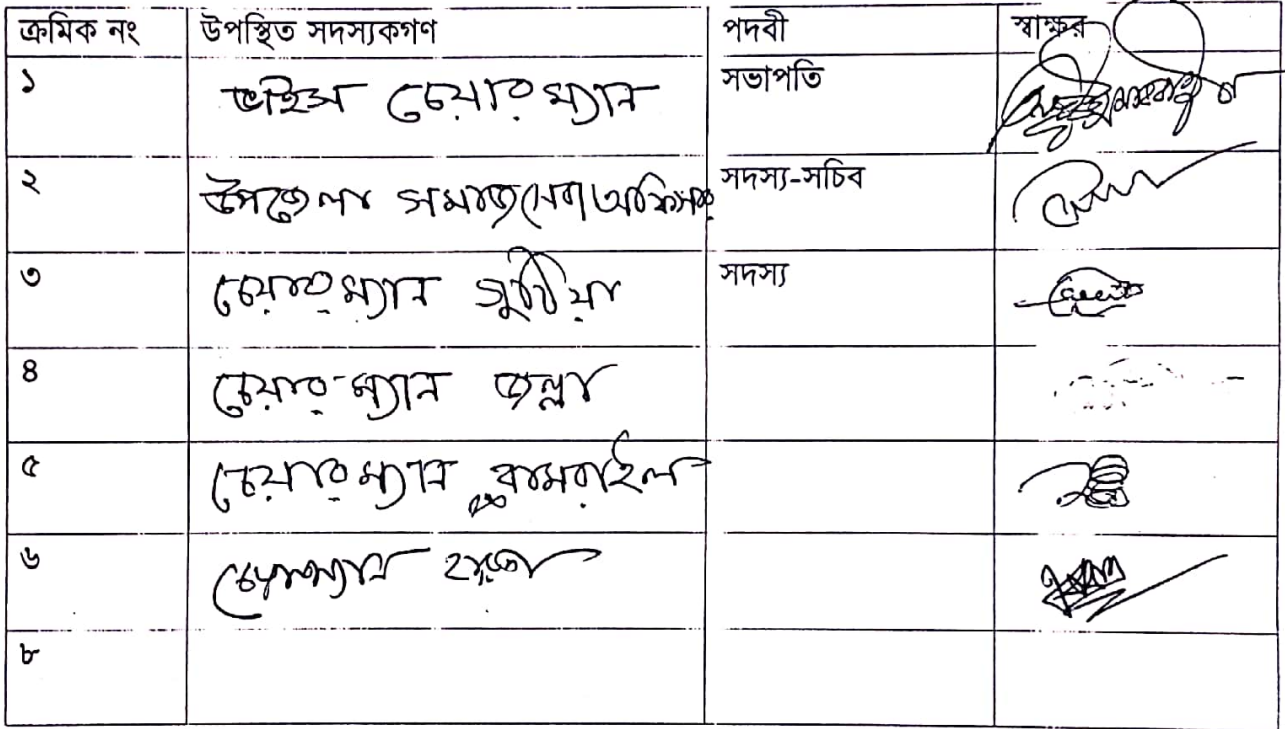 ক্রমিক নং উপস্থিত সদস্যকগণ পদবী স্বাক্ষর
১ ভাইস চেয়ারম্যান সভাপতি
২ উপজেলা সমাজসেবা অফিসার সদস্য-সচিব
৩ চেয়ারম্যান গুঠিয়া সদস্য
৪ চেয়ারম্যান জল্লা
৫ চেয়ারম্যান বামরাইল
৬ চেয়ারম্যান হারতা
৮